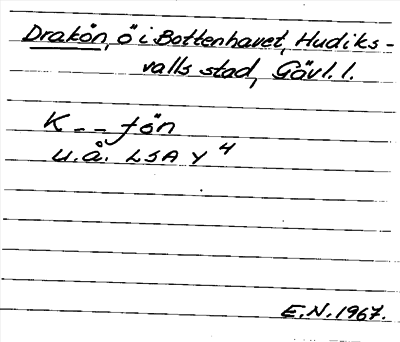 Drakön, ö i Bottenhavet, Hudiks-
valls stad, Gävl. l.
K - - fön
u.å. LSA Y 4
E.N. 1967.